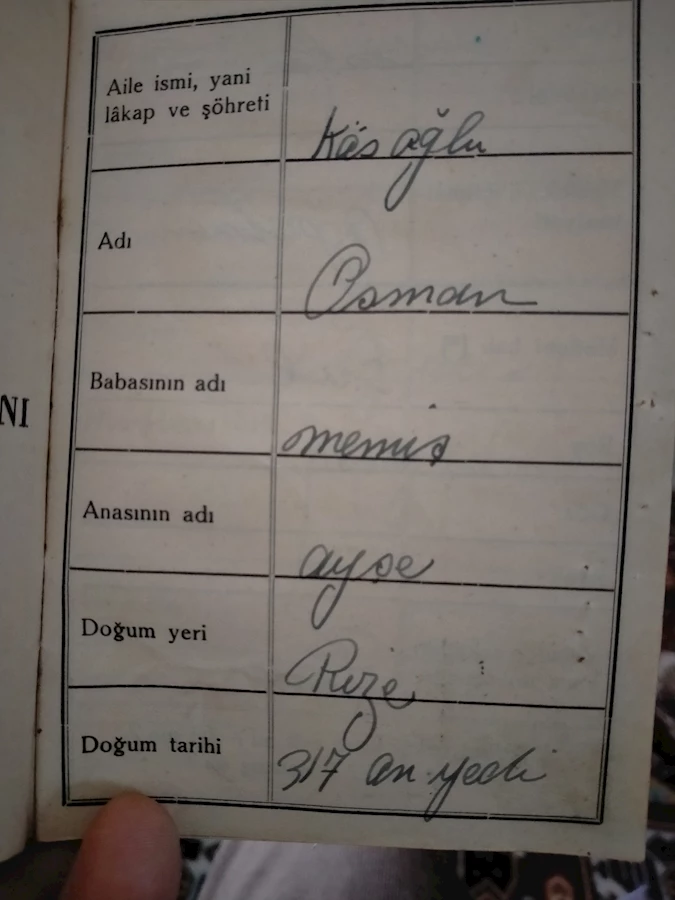 Aile ismi, yani
lâkap ve şöhreti
Kâs oğlu
Adı
Osman
Babasının adı
memiş
Anasının adı
ayşe
Doğum yeri
Rize
Doğum tarihi
317 on yedi
NI